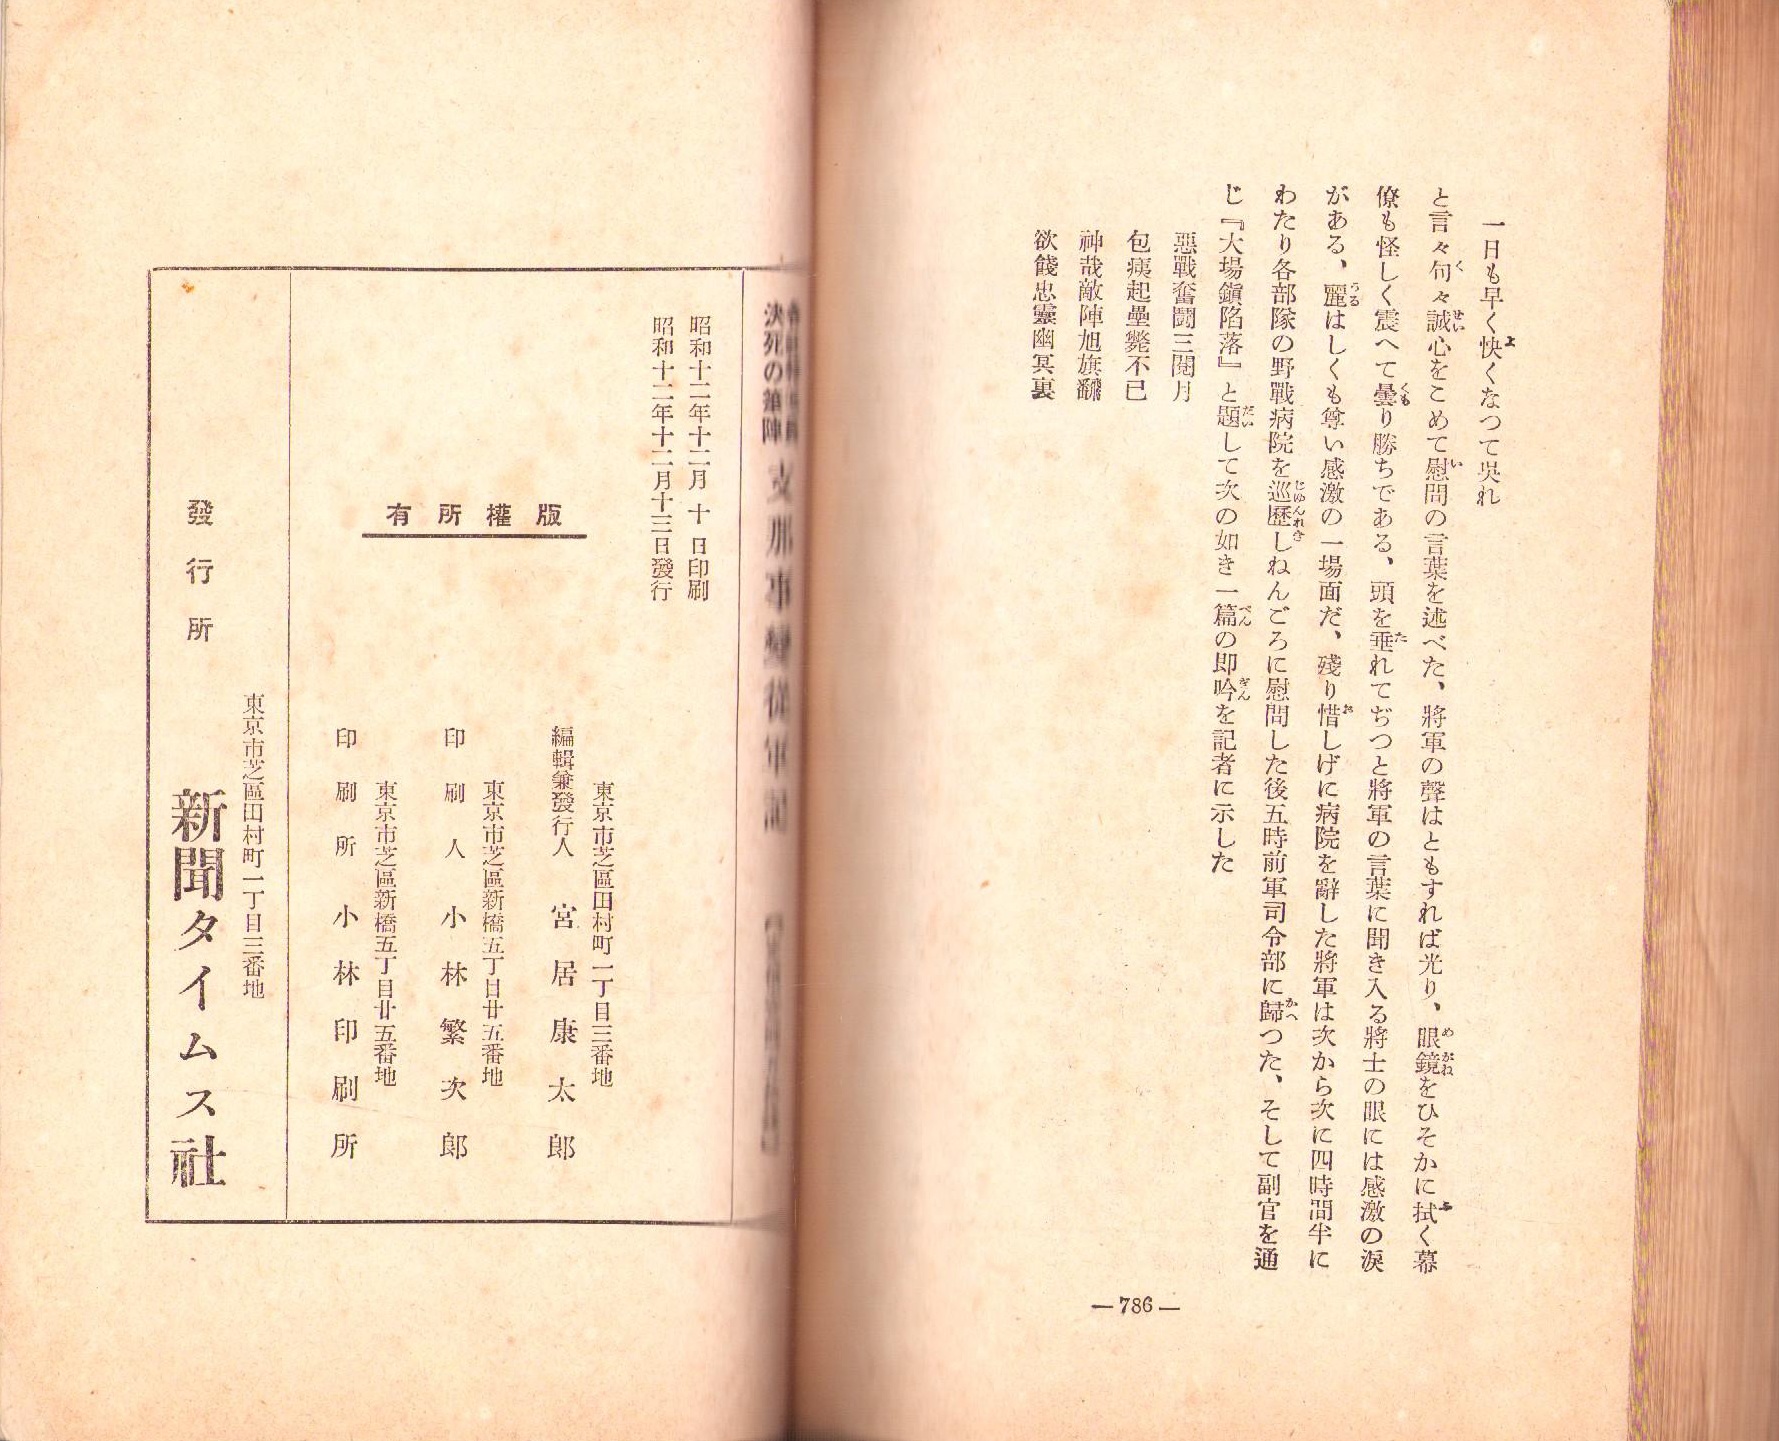 一日も早く快くなつて呉れ
と言々句々誠心をこめて慰問の言葉を述べた、將軍の聲はともすれば光り、眼鏡をひそかに拭く幕
僚も怪しく震へて曇り勝ちである、頭を垂れてぢつと將軍の言葉に聞き入る將士の眼には感激の淚
がある、麗はしくも尊い感激の一場面だ、殘り惜しげに病院を辭した將軍は次から次に四時間半に
わたり各部隊の野戰病院を巡歷しねんごろに慰問した後五時前軍司令部に歸つた、そして副官を通
じ『大場鎭陷落』と題して次の如き一篇の即吟を記者に示した
惡戰奮鬪三閱月
包痍起壘斃不已
神哉敵陣旭旗飜
欲餞忠靈幽冥裏
—786—
決死の筆陣 支那事變從軍記
昭和十二年十二月十日印刷
昭和十二年十二月十三日發行
版權所有
東京市芝區田村町一丁目三番地
編輯兼發行人 宮居康太郎
東京市芝區新橋五丁目廿五番地
印刷人 小林繁次郎
東京市芝區新橋五丁目廿五番地
印刷所 小林印刷所
東京市芝區田村町一丁目三番地
發行所 新聞タイムス社